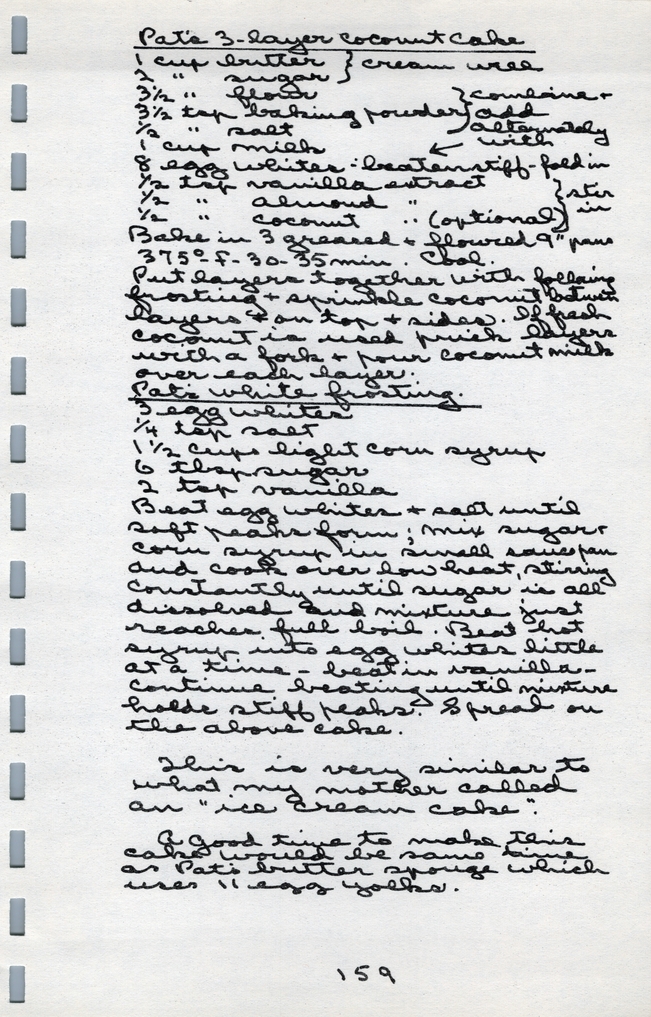 Pat's 3-layer coconut cake
1 cup butter } cream well
2 " sugar
3½ " flour } combine +
3½ tsp baking powder add
½ " salt alternately
1 cup milk ← with
8 egg whites - beaten stiff - fold in
½ tsp vanilla extract } stir
½ " almond " in
½ " coconut " (optional)
Bake in 3 greased + floured 9" pans
375° F - 30-35 min. Cool.
Put layers together with following
frosting + sprinkle coconut between
layers + on top + sides. If fresh
coconut is used prick layers
with a fork + pour coconut milk
over each layer.
Pat's white frosting.
3 egg whites
¼ tsp salt
1½ cups light corn syrup
6 tbsp sugar
2 tsp vanilla
Beat egg whites + salt until
soft peaks form; mix sugar +
corn syrup in small saucepan
and cook over low heat, stirring
constantly until sugar is all
dissolved and mixture just
reaches full boil. Beat hot
syrup into egg whites little
at a time - beat in vanilla -
continue beating until mixture
holds stiff peaks. Spread on
the above cake.
This is very similar to
what my mother called
an "ice cream cake".
A good time to make this
cake would be same time
as Pat's butter sponge which
uses 11 egg yolks.
159